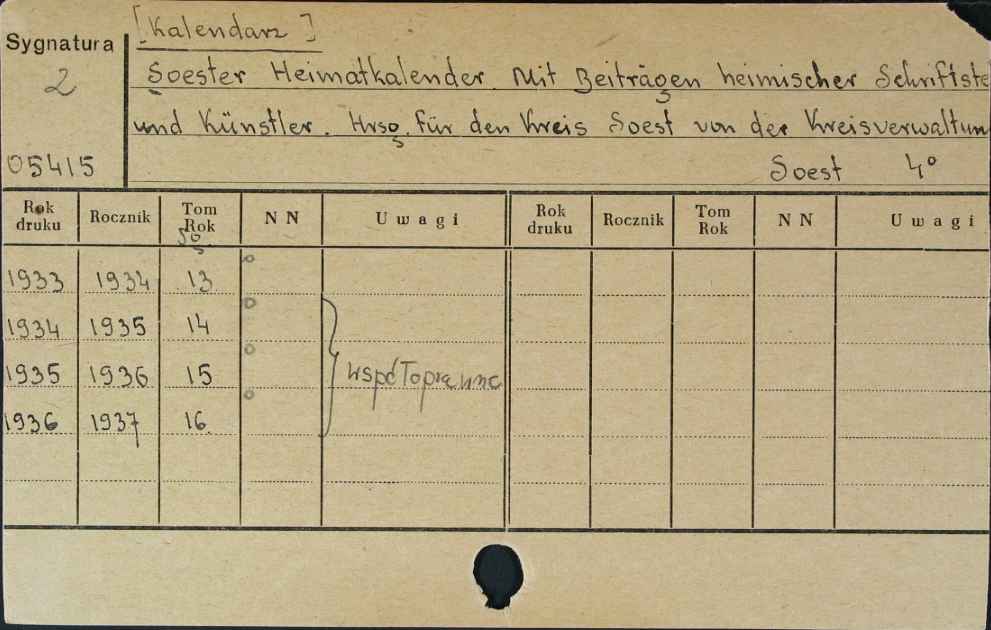 [Kalendarz]
Sygnatura
Soester Heimatkalender. Mit Beiträgen heimischer Schriftste
2
und Künstler. Hrsg. für den Kreis Soest von der Kreisverwaltun
05415
Soest 4°
Rok druku Rocznik Tom Rok NN Uwagi Rok druku Rocznik Tom Rok NN Uwagi
1933 1934 13
1934 1935 14
1935 1936 15 współoprawne
1936 1937 16.